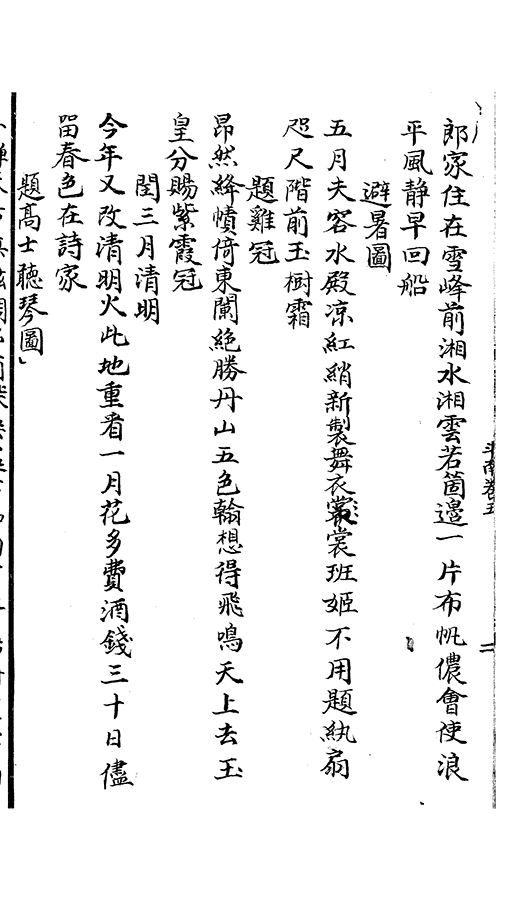 郎家住在雪峰前湘水湘雲若箇邉一片布帆儂會使浪
平風静早回船
避暑圖
五月夫容水殿凉紅綃新製舞衣裳裳班姬不用題紈扇
咫尺階前玉樹霜
題雞冠
昂然絳幘倚東闌絶勝丹山五色翰想得飛鳴天上去玉
皇分賜紫霞冠
閏三月清明
今年又改清明火此地重看一月花多費酒錢三十日儘
留春色在詩家
題髙士聽琴圖
斗南卷五
二